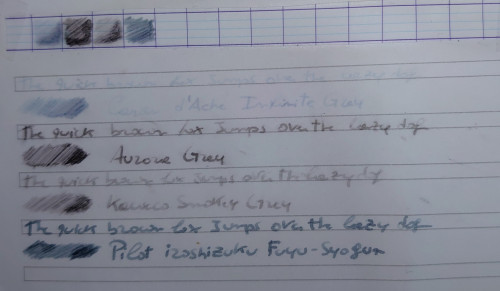 The quick brown fox Jumps over the Lazy dog
Caran d'Ache Infinite Grey
The quick brown fox Jumps over the Lazy dog
Aurora Grey
The quick brown fox Jumps over the Lazy dog
Kaweco Smokey Grey
The quick brown fox Jumps over the Lazy dog
Pilot iroshizuku Fuyu-Syogun